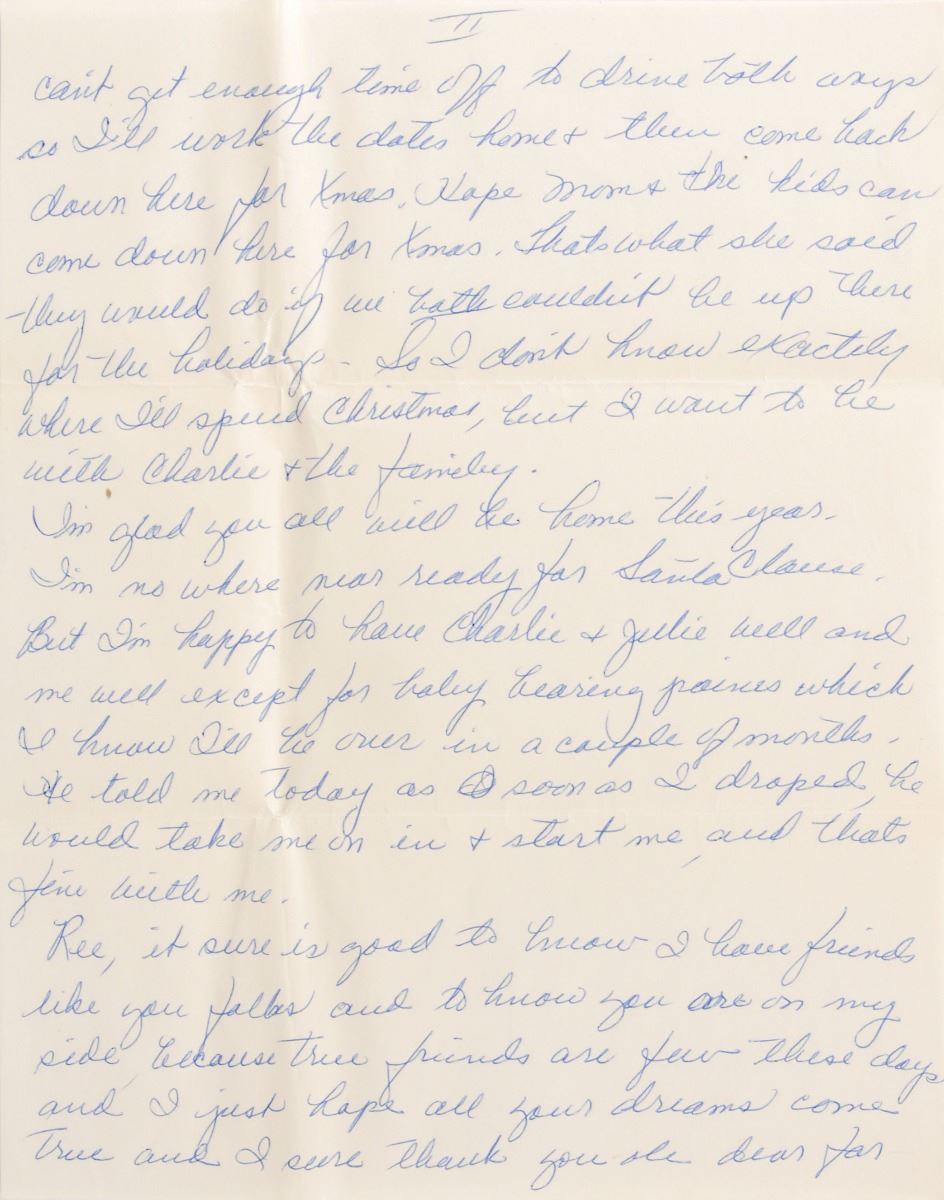 II
can't get enough time off to drive both ways
so I'll work the dates home & then come back
down here for Xmas. Hope Mom & the kids can
come down here for Xmas. Thats what she said
they would do if we both couldn't be up there
for the holidays - So I don't know exactely
where I'll spend Christmas, but I want to be
with Charlie & the family.
I'm glad you all will be home this year.
I'm no where near ready for Santa Clause.
But I'm happy to have Charlie & Julie well and
me well except for baby bearing paines which
I know I'll be over in a couple of months.
He told me today as soon as I droped, he
would take me on in & start me, and thats
fine with me.
Ree, it sure is good to know I have friends
like you folks and to know you are on my
side, because true friends are few these days
and I just hope all your dreams come
true and I sure thank you ole dear for